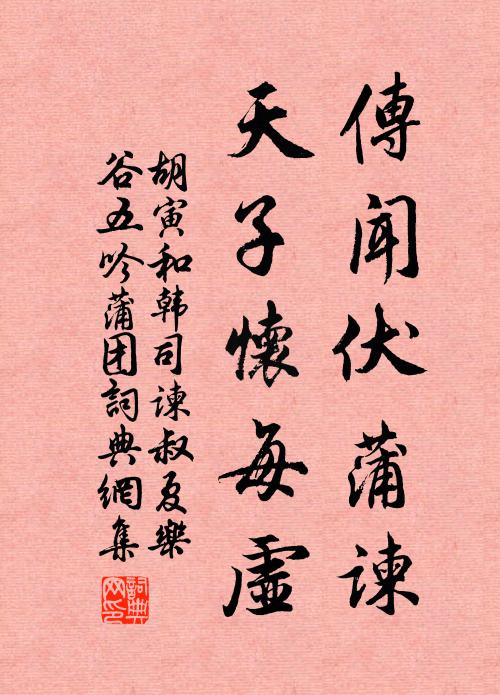 傳聞伏蒲諫
天子懷每虛
胡寅和韩司諫叔夏樂
谷五吟蒲团詞典網集
詞典网印